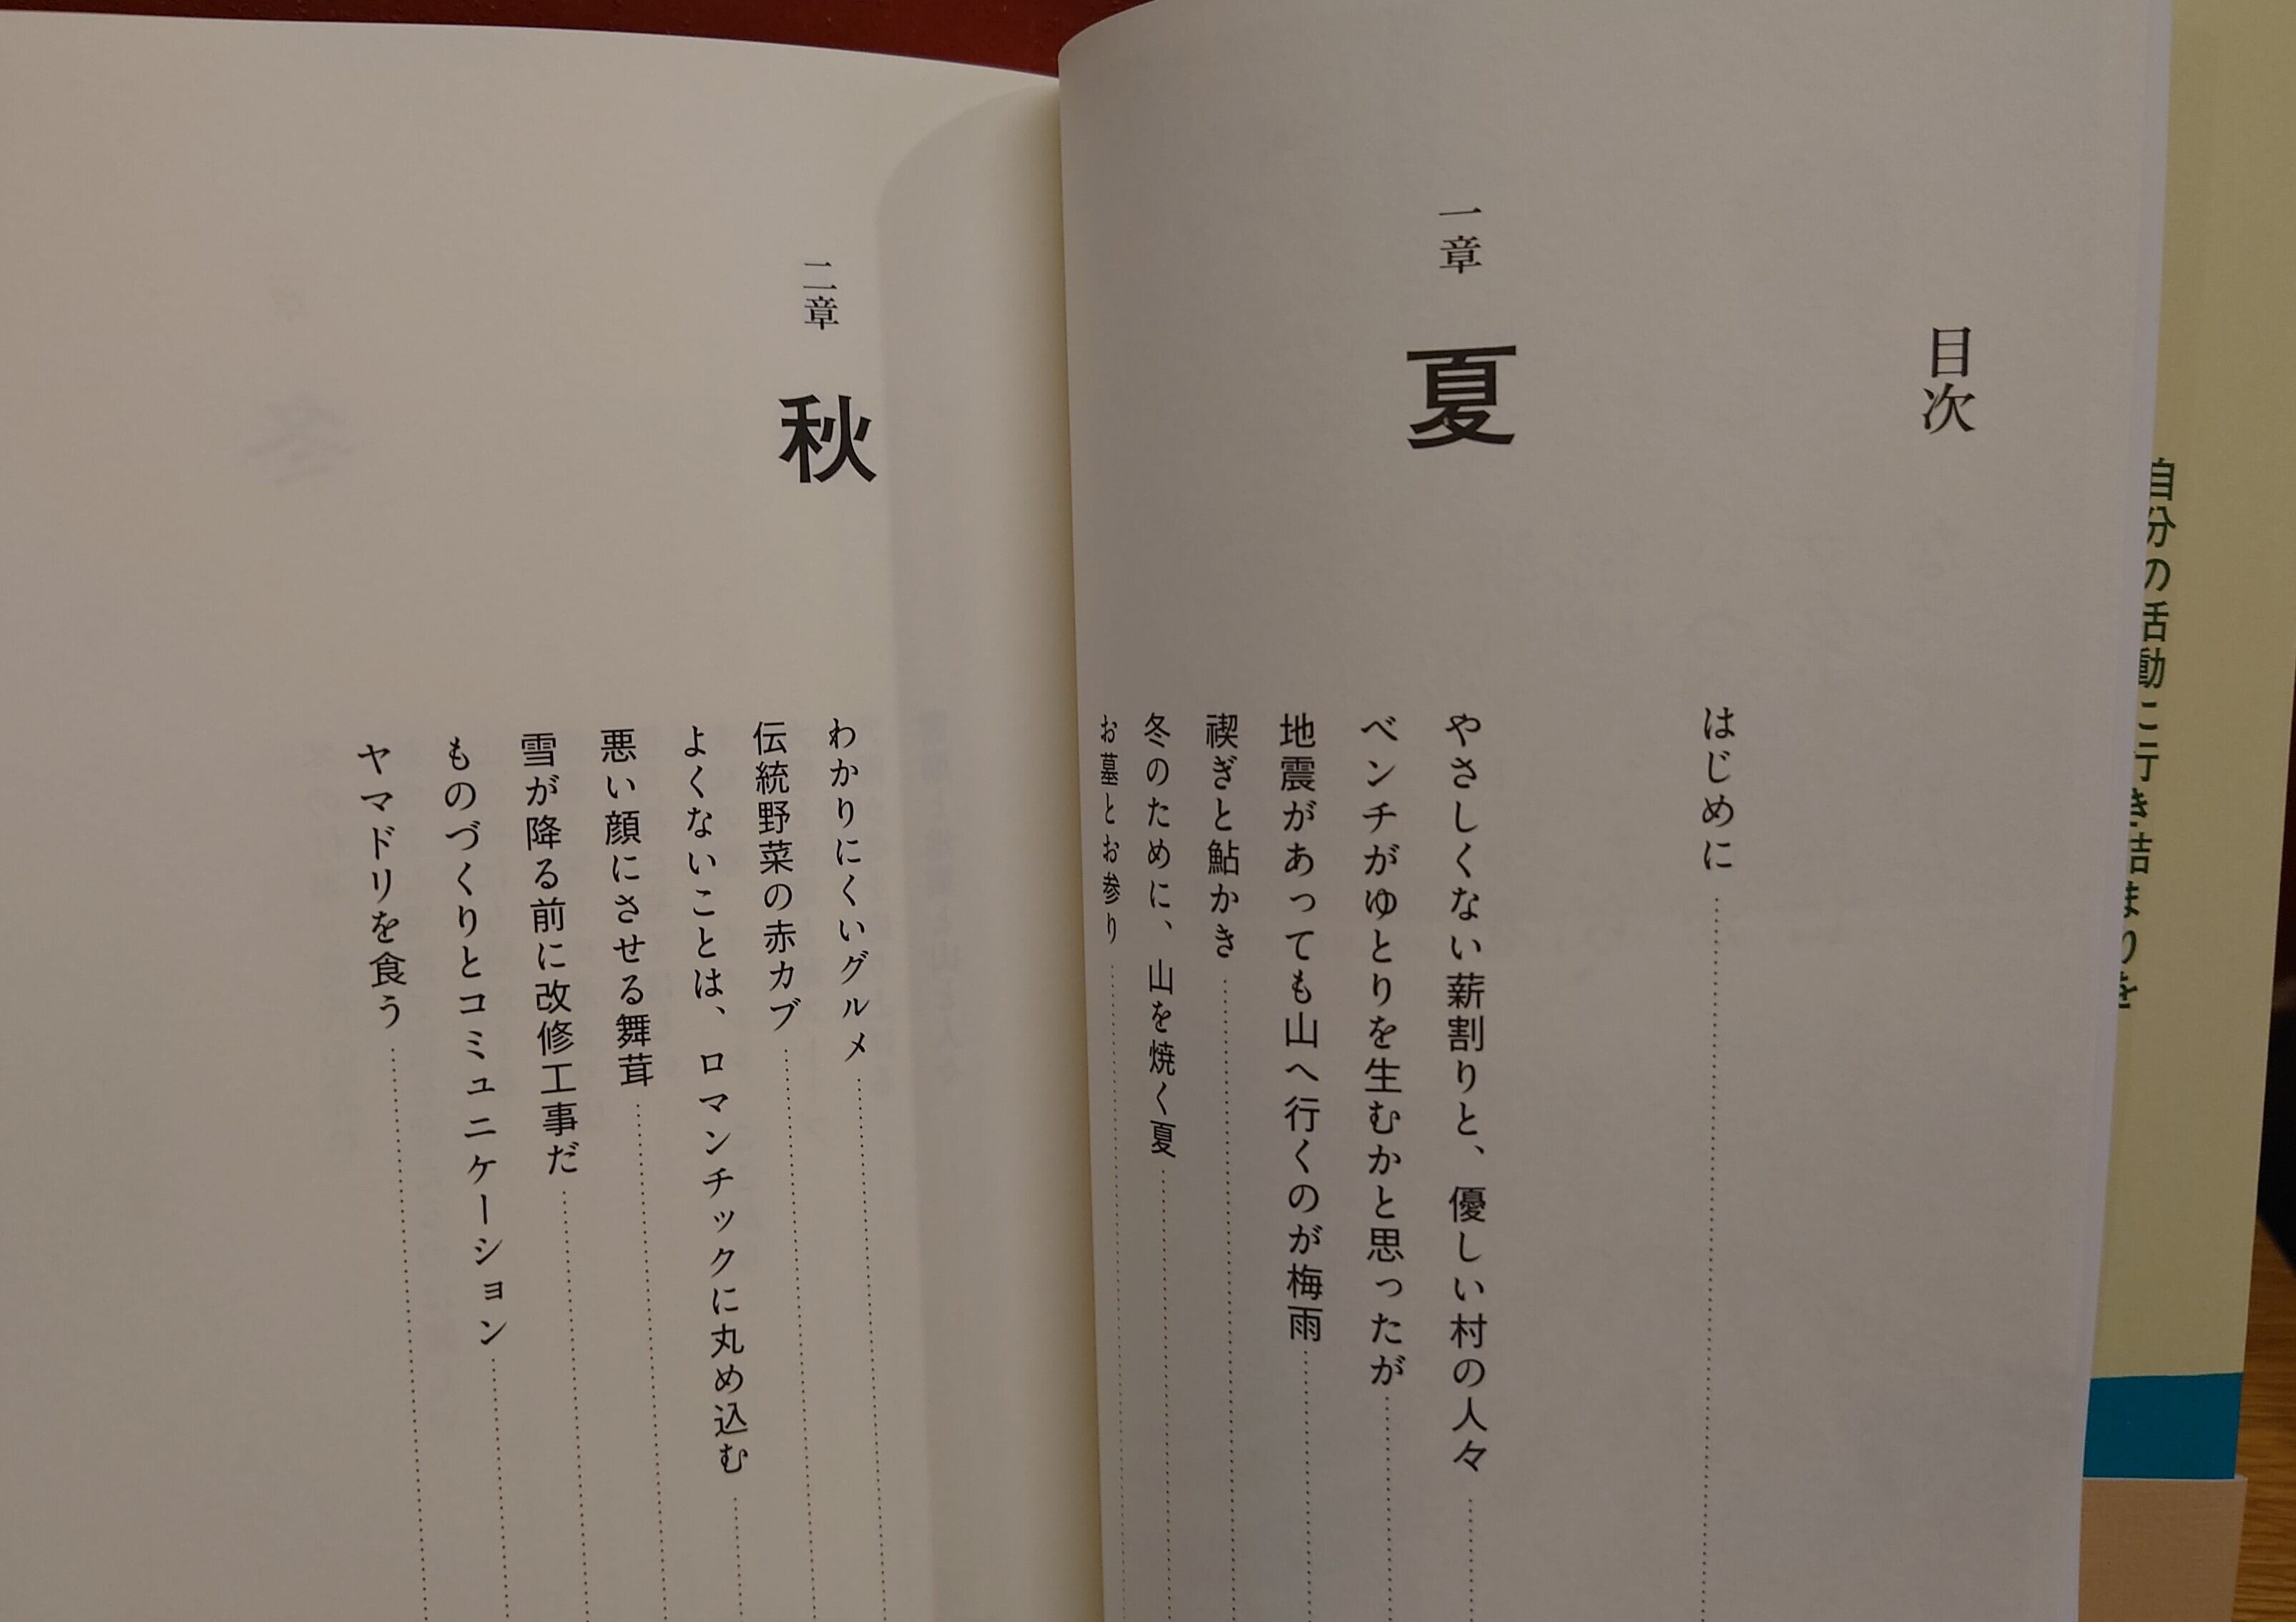 自分の活動に行き詰まりを
目次
はじめに
一章
夏
やさしくない薪割りと、優しい村の人々
ベンチがゆとりを生むかと思ったが
地震があっても山へ行くのが梅雨
禊ぎと鮎かき
冬のために、山を焼く夏
お墓とお参り
二章
秋
わかりにくいグルメ
伝統野菜の赤カブ
よくないことは、ロマンチックに丸め込む
悪い顔にさせる舞茸
雪が降る前に改修工事だ
ものづくりとコミュニケーション
ヤマドリを食う
冬